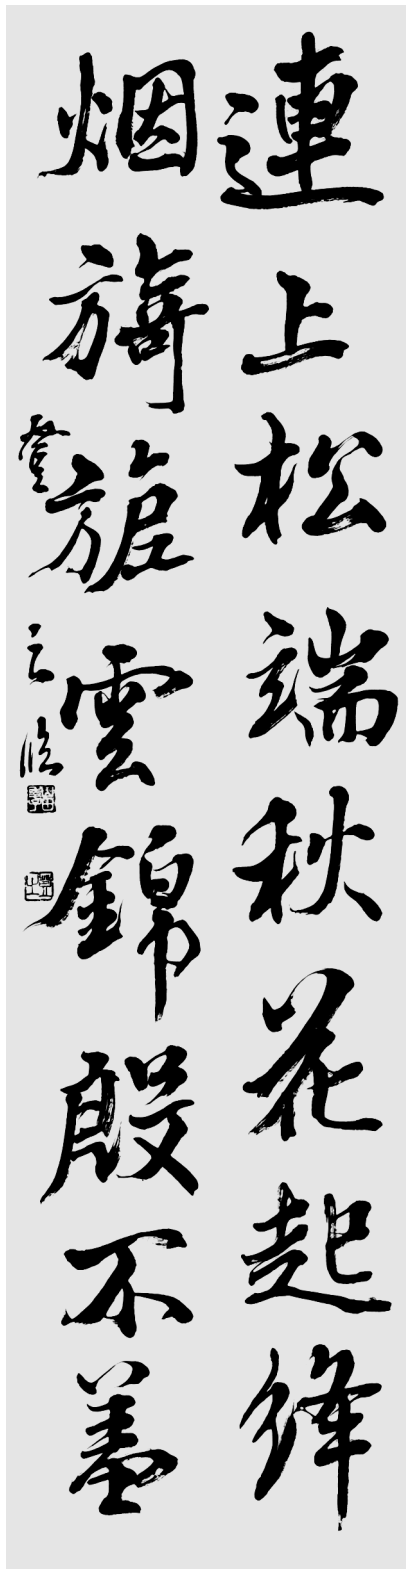 連上松端秋花起絳
烟旖旎雲錦殷不羞
登之臨